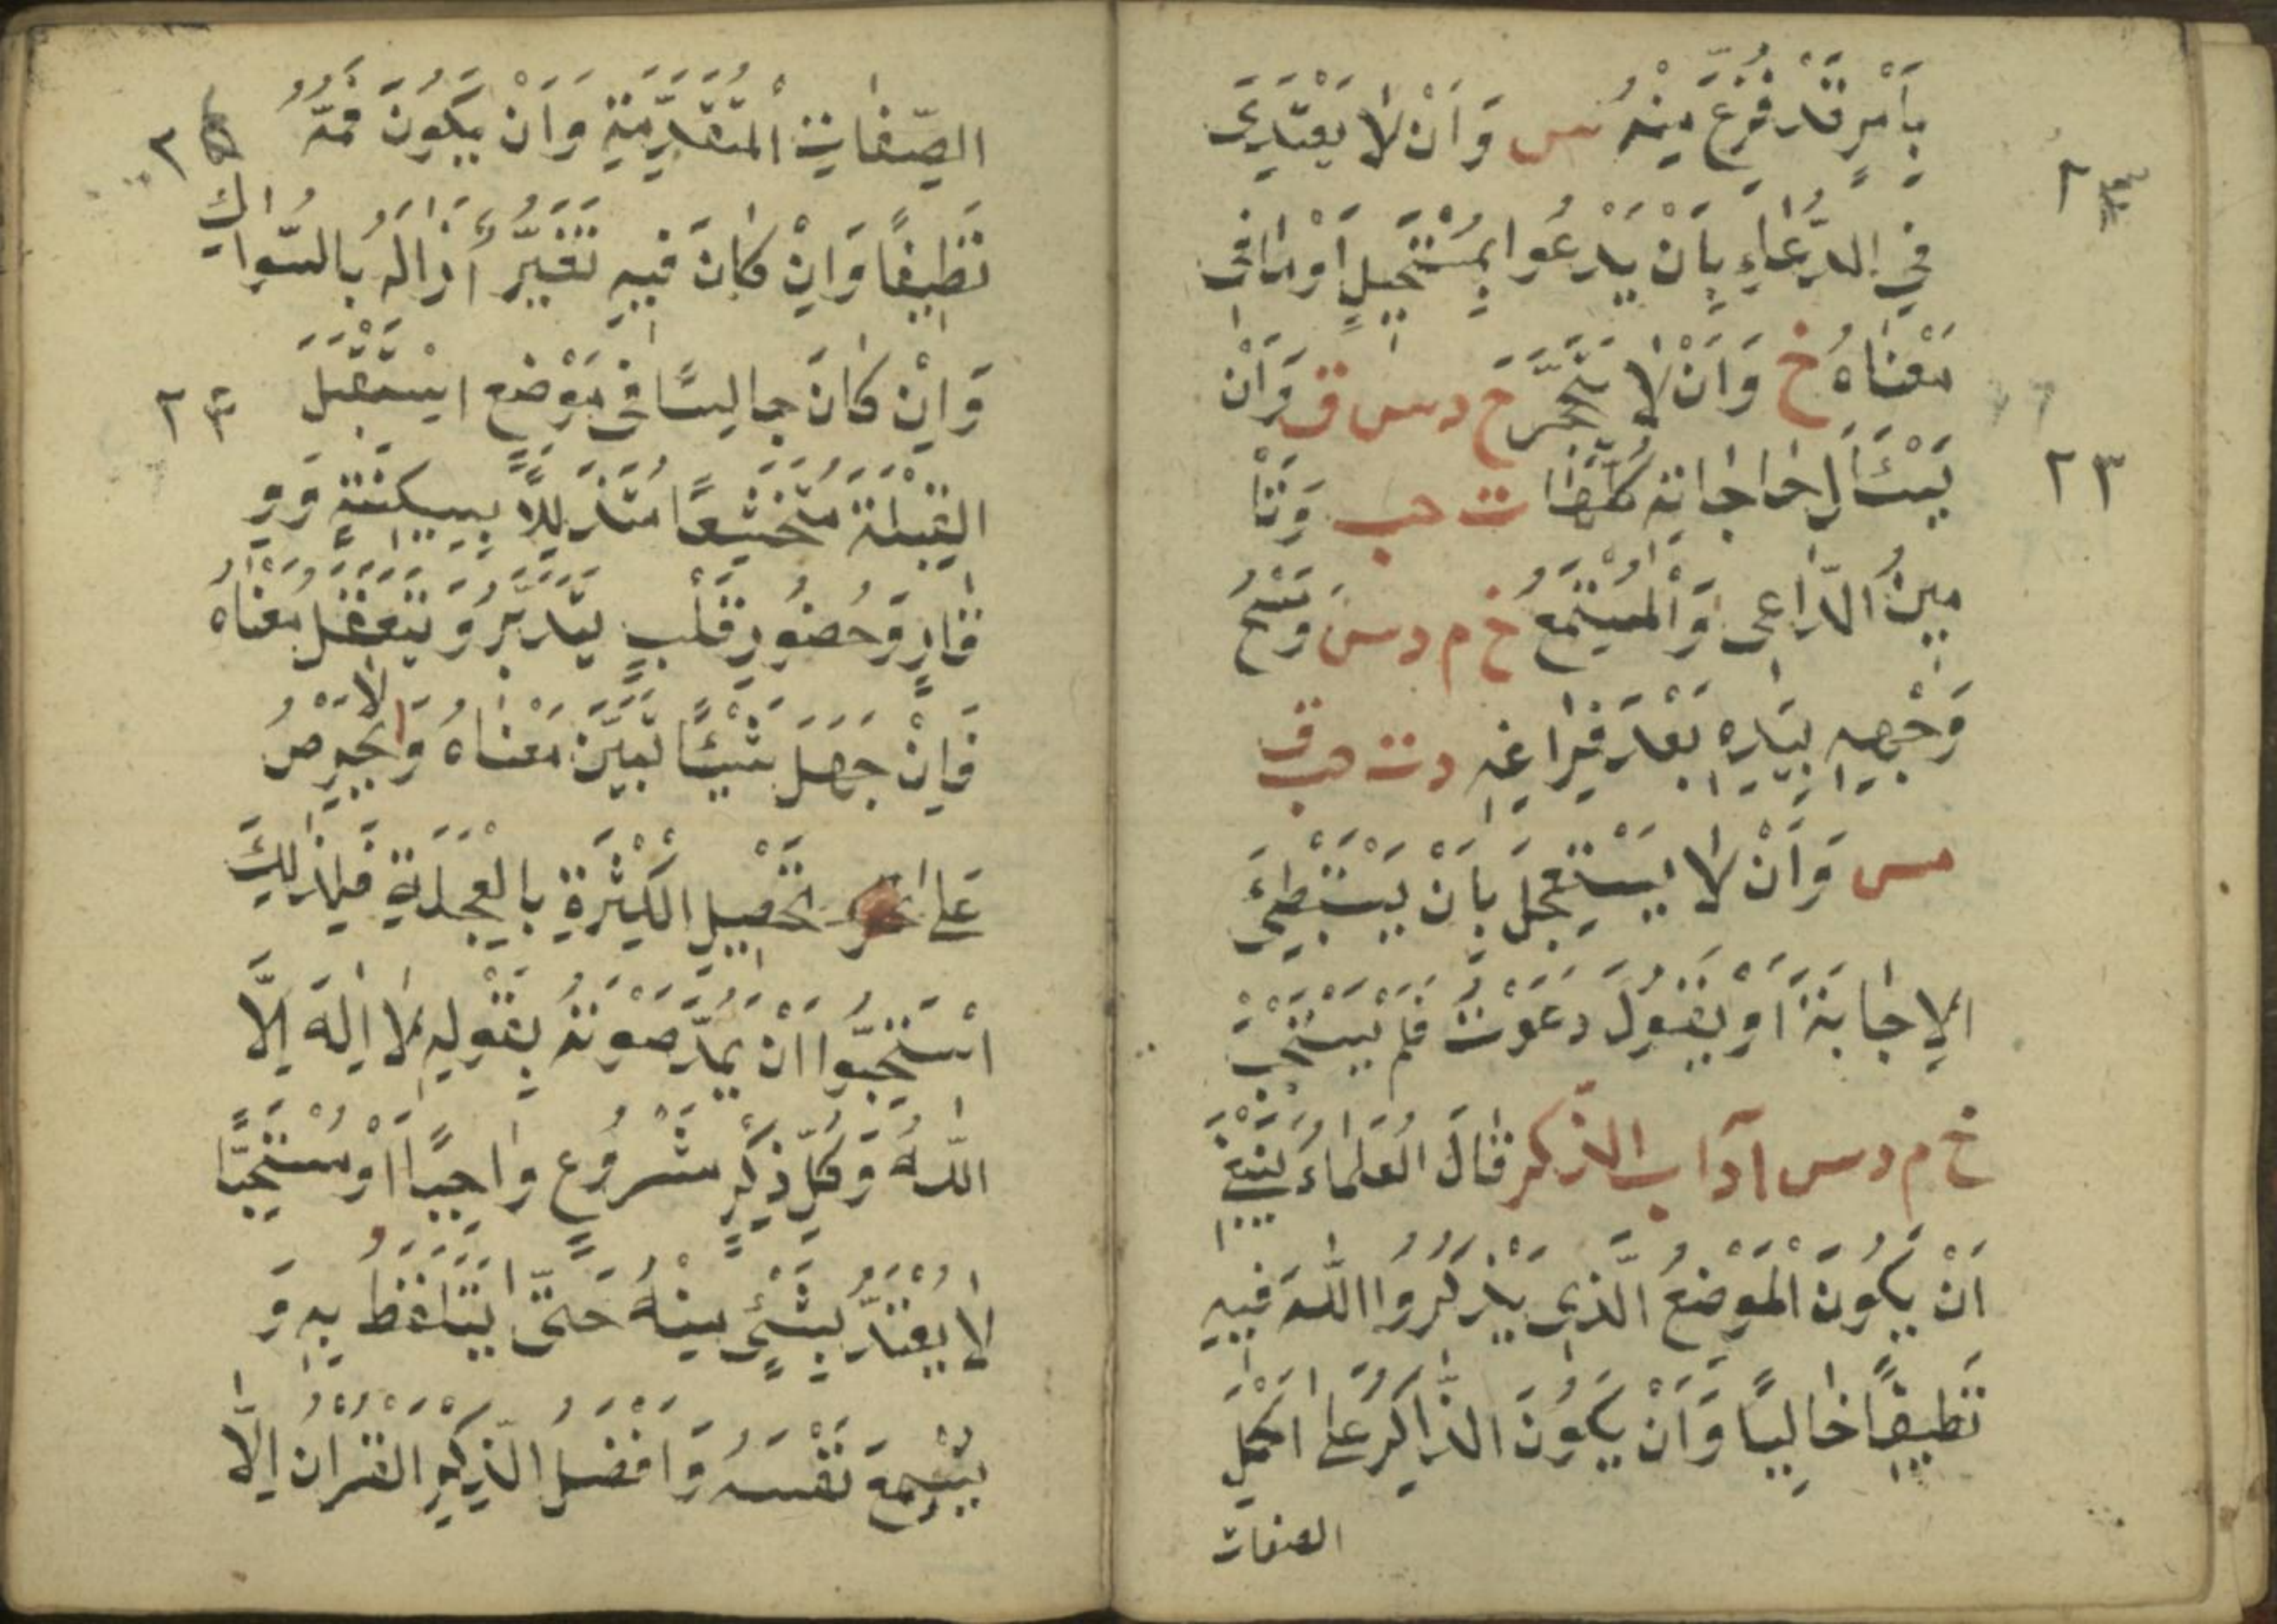 بِأَمْرٍ قَدْ فُرِّغَ مِنْهُ س وَاَنْ لَا يَعْتَدِىَ
فِي الدُّعَاءِ بِاَنْ يَدْعُوا بِمُسْتَحِيلٍ اَوْ مَا فِى
مَعْنَاهُ خ وَاَنْ لَا يَتَحَجَّرَ خ د س ق وَاَنْ
يَسْئَالَ حَاجَاتِهِ كُلَّهَا ت حب وَتَأْ
مِينُ الدَّاعِى وَالْمُسْتَمِعُ خ م د س وَمَسْحُ
وَجْهِهِ بِيَدِهِ بَعْدَ فَرَاغِهِ د ت حب ق
مس وَاَنْ لَا يَسْتَعْجِلَ بِاَنْ يَسْتَبْطِئَ
الاِجَابَةَ اَوْ يَقُولَ دَعَوْتُ فَلَمْ يُسْتَجَبْ
خ م د س آداب الذّكر قَالَ الْعُلَمَاءُ يَنْبَغِى
اَنْ يَكُونَ الْمَوْضِعُ الَّذِى يَذْكُرُوا اللّٰهَ فِيهِ
نَظِيفًا خَالِيًا وَاَنْ يَكُونَ الذَّاكِرُ عَلٰى اَكْمَلِ
الصفات
٢٣
الصِّفَاتِ الْمُتَقَدِّمَةِ وَاَنْ يَكُونَ فَمُهُ
نَظِيفًا وَاِنْ كَانَ فِيهِ تَغَيُّرٌ أَزَالَهُ بِالسِّوَاكِ
وَاِنْ كَانَ جَالِسًا فِى مَوْضِعٍ اسْتَقْبَلَ
الْقِبْلَةَ مُتَخَشِّعًا مُتَذَلِّلًا بِسَكِينَةٍ وَوِ
قَارٍ وَحُضُورِ قَلْبٍ يَتَدَبَّرُ وَيَتَعَقَّلُ مَعْنَاهُ
فَاِنْ جَهِلَ شَيْئًا تَبَيَّنَ مَعْنَاهُ وَلَا يَحْرِصُ
عَلٰى تَحْصِيلِ الْكَثْرَةِ بِالْعَجَلَةِ فَلِذٰلِكَ
اسْتَحَبُّوا اَنْ يَمُدَّ صَوْتَهُ بِقَوْلِهِ لَا اِلٰهَ اِلَّا
اللّٰهُ وَكُلُّ ذِكْرٍ مَشْرُوعٍ وَاجِبًا اَوْ مُسْتَحَبًّا
لَا يُعْتَدُّ بِشَىْءٍ مِنْهُ حَتّٰى يَتَلَفَّظَ بِهِ وَ
يُسْمِعَ نَفْسَهُ وَاَفْضَلُ الذِّكْرِ الْقُرْاٰنُ اِلَّا